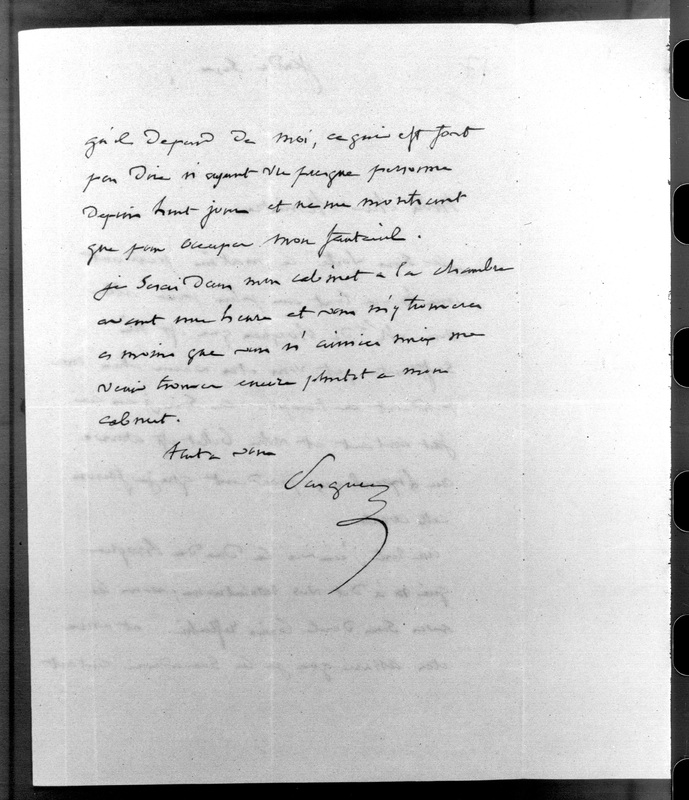 qu'il depend de moi, ce qui est fort
peu dire n'ayant vu presque personne
depuis huit jours et ne me montrant
que pour occuper mon fauteuil.
je serai dans mon cabinet a la chambre
avant une heure et vous m'y trouverez
a moins que vous n'aimiez mieux me
venir trouver encore plutot a mon
cabinet.
tout a vous
Pasquier